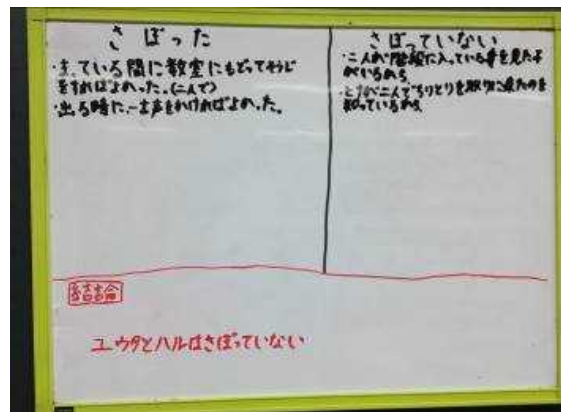 さぼった
・まっている間に教室にもどってそうじ
をすればよかった。(二人で)
・出る時に、一言声をかければよかった。
さぼっていない
・二人が階段に入っている事を見た子
がいるから
・二人でちりとりを取りに来たのを
知っているから
結論
ユウタとハルはさぼっていない